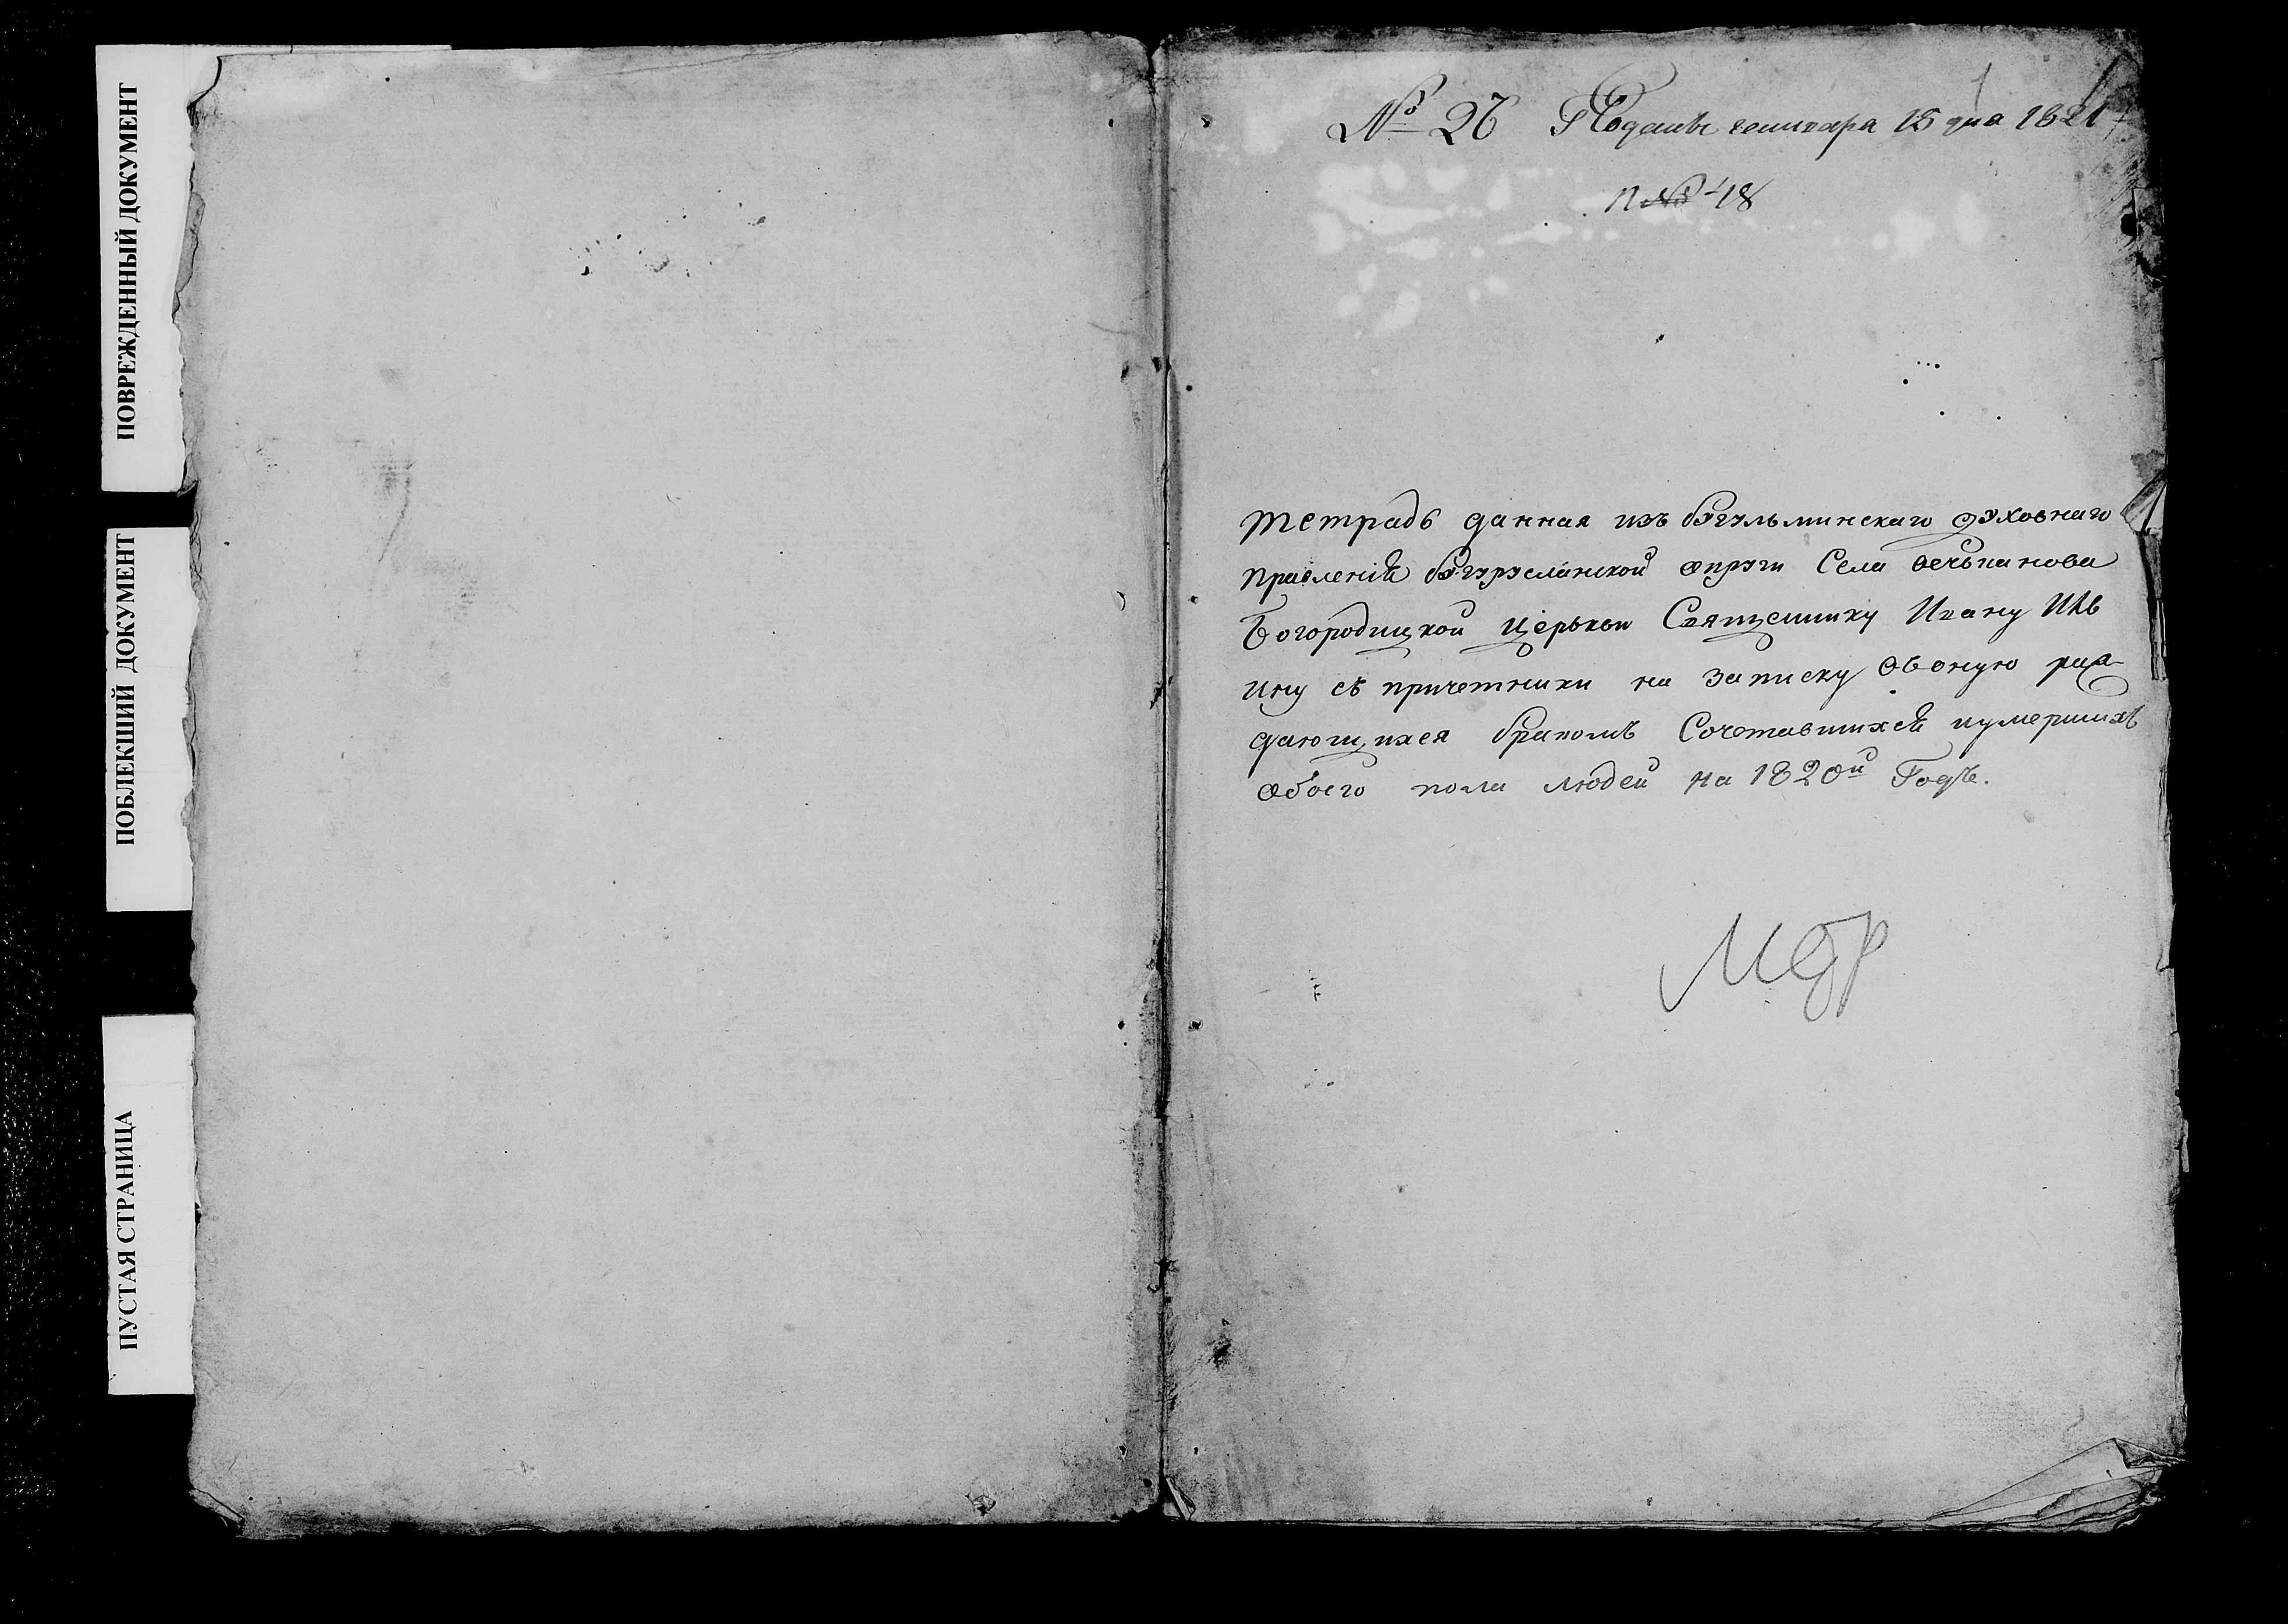 ПОВРЕЖДЕННЫЙ ДОКУМЕНТ
ПОБЛЕКШИЙ ДОКУМЕНТ
ПУСТАЯ СТРАНИЦА
1
№ 26 Подана генваря 15 дня 1821
№ 48
Тетрадь данная изъ бугульминскаго духовнаго
правленія бугурусланской округи Села
Богородицкой церькви Священнику Ивану Иль
ину съ причетники на записку вьоную раж
дающихся бракомъ Сочетавшихся иумершихъ
обоего пола людей на 1820й Годъ.